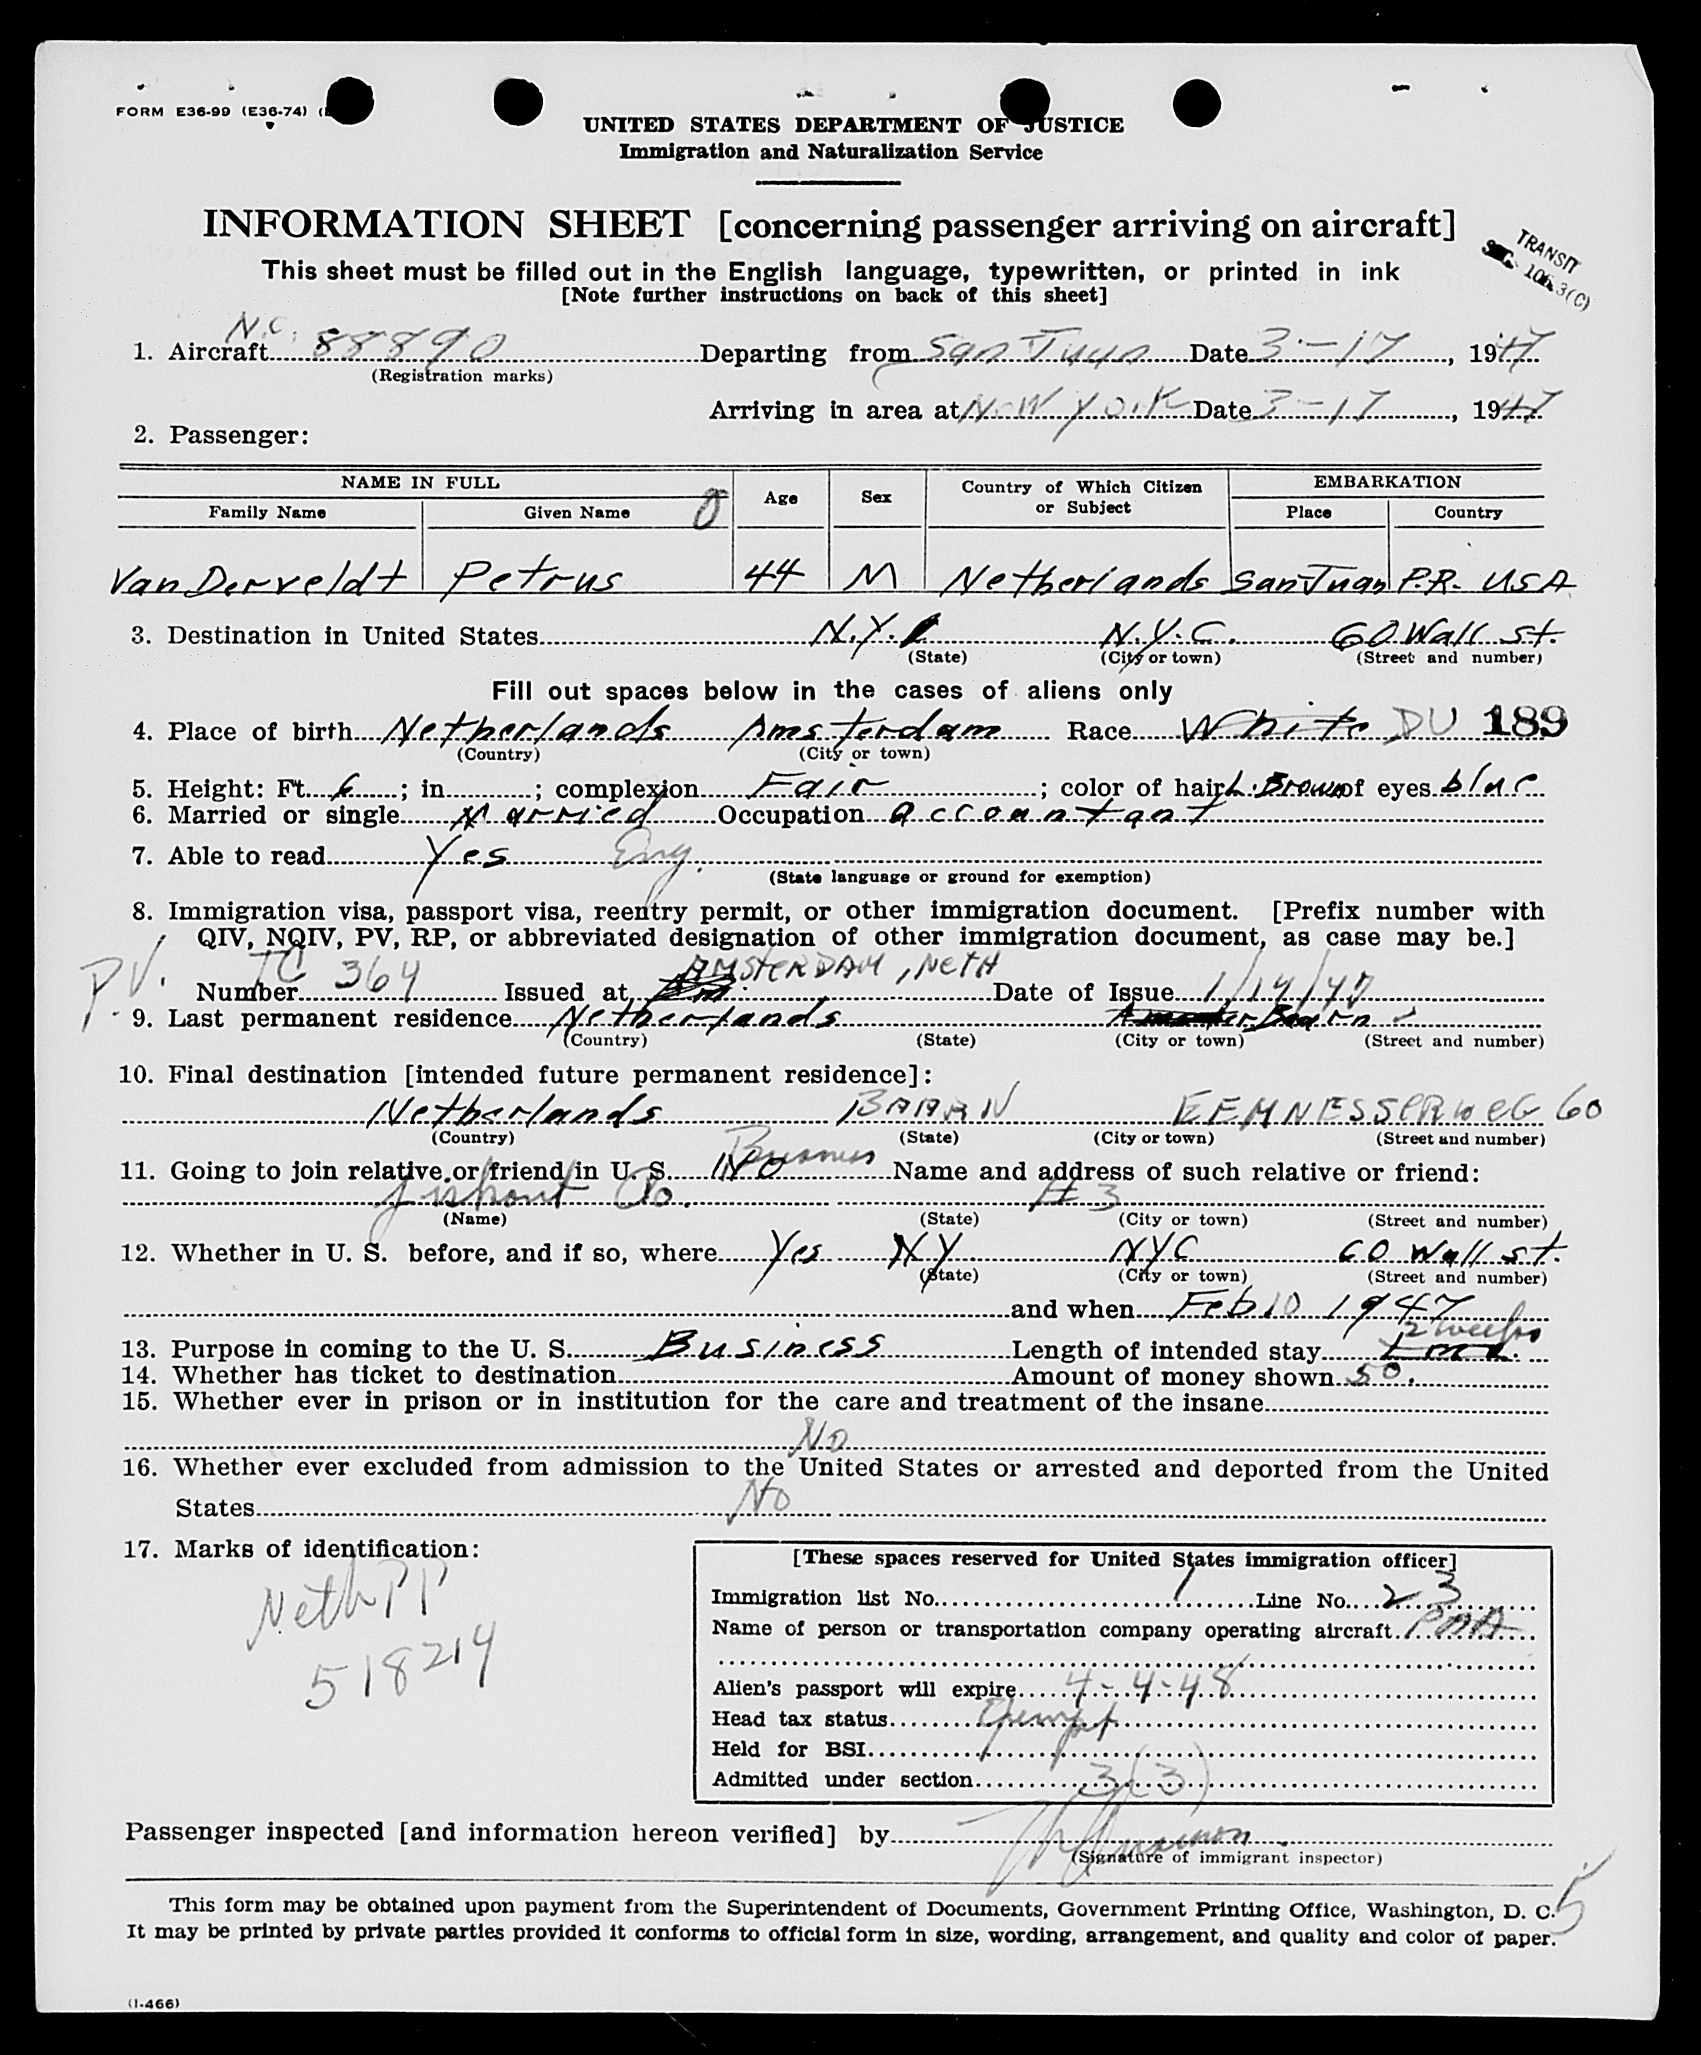 FORM E36-99 (E36-74)
UNITED STATES DEPARTMENT OF JUSTICE
Immigration and Naturalization Service
INFORMATION SHEET [concerning passenger arriving on aircraft]
TRANSIT
SEC. 106.3(C)
This sheet must be filled out in the English language, typewritten, or printed in ink
[Note further instructions on back of this sheet]
1. Aircraft N.C. 88890 Departing from San Juan Date 3-17, 1947
(Registration marks)
Arriving in area at New York Date 3-17, 1947
2. Passenger:
NAME IN FULL Age Sex Country of Which Citizen or Subject EMBARKATION
Family Name Given Name Place Country
Van Derveldt Petrus 44 M Netherlands San Juan P.R. USA
3. Destination in United States N.Y. N.Y.C. 60 Wall St.
(State) (City or town) (Street and number)
Fill out spaces below in the cases of aliens only
4. Place of birth Netherlands Amsterdam Race White DU 189
(Country) (City or town)
5. Height: Ft. 6; in.; complexion Fair; color of hair L. Brown of eyes blue
6. Married or single Married Occupation accountant
7. Able to read Yes Eng.
(State language or ground for exemption)
8. Immigration visa, passport visa, reentry permit, or other immigration document. [Prefix number with
QIV, NQIV, PV, RP, or abbreviated designation of other immigration document, as case may be.]
PV. TC 364 AMSTERDAM, NETH
Number Issued at Date of Issue 1/14/47
9. Last permanent residence Netherlands Baarn
(Country) (State) (City or town) (Street and number)
10. Final destination [intended future permanent residence]:
Netherlands BAARN EEMNESSERWEG 60
(Country) (State) (City or town) (Street and number)
11. Going to join relative or friend in U. S. No Business Name and address of such relative or friend:
Co. # 3
(Name) (State) (City or town) (Street and number)
12. Whether in U. S. before, and if so, where Yes NY NYC 60 Wall St.
(State) (City or town) (Street and number)
and when Feb 10 1947
13. Purpose in coming to the U. S. Business Length of intended stay 2 weeks
14. Whether has ticket to destination Amount of money shown 50.
15. Whether ever in prison or in institution for the care and treatment of the insane
No
16. Whether ever excluded from admission to the United States or arrested and deported from the United
States No
17. Marks of identification:
Neth PP
518214
[These spaces reserved for United States immigration officer]
Immigration list No. 1 Line No. 23
Name of person or transportation company operating aircraft PAA
Alien's passport will expire 4-4-48
Head tax status Exempt
Held for BSI
Admitted under section 3(3)
Passenger inspected [and information hereon verified] by
(Signature of immigrant inspector)
5
This form may be obtained upon payment from the Superintendent of Documents, Government Printing Office, Washington, D. C.
It may be printed by private parties provided it conforms to official form in size, wording, arrangement, and quality and color of paper.
(I-466)